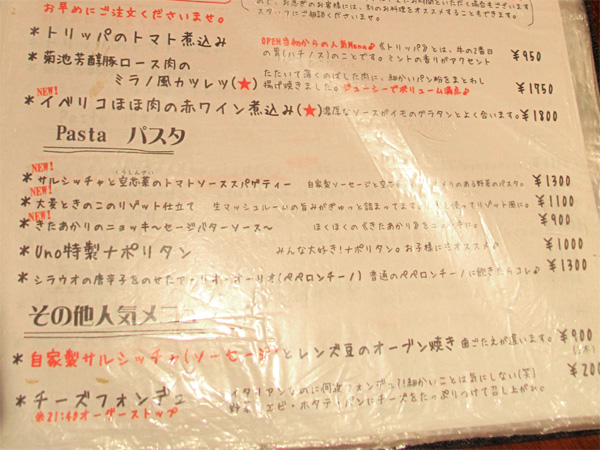 お早めにご注文くださいませ。
スタッフにご相談ください。
*トリッパのトマト煮込み OPEN当初からの人気Menu♪《トリッパ》とは、牛の2番目の胃(ハチノス)のことです。ミントの香りがアクセント ¥950
*菊池芳醇豚ロース肉の
ミラノ風カツレツ(★) たたいて薄くのばした肉に、細かいパン粉をまとわし揚げ焼きました。ジューシーでボリューム満点♪ ¥1950
NEW!
*イベリコほほ肉の赤ワイン煮込み(★) 濃厚なソースがイモのグラタンとよく合います。 ¥1800
Pasta パスタ
NEW!
*サルシッチャと空芯菜のトマトソーススパゲティー 自家製ソーセージと のある野菜のパスタ。 ¥1300
NEW!
*大麦ときのこのリゾット仕立て 生マッシュルームの旨みがぎゅっと詰まってます。 使ってリゾット風に。 ¥1100
NEW!
*きたあかりのニョッキ〜セージバターソース〜 ほくほくの《きたあかり》を ¥900
*Uno特製ナポリタン みんな大好き!ナポリタン。お子様にもオススメ♪ ¥1000
*シラウオの唐辛子をのせたアーリオ・オーリオ(ペペロンチーノ) 普通のペペロンチーノに飽きたらコレ♪ ¥1300
その他人気メニュー
*自家製サルシッチャ(ソーセージ)とレンズ豆のオーブン焼き 歯ごたえが違います。 ¥900
*チーズフォンデュ イタリアンなのに何故フォンデュ?!細かいことは気にしない(笑) ¥200
野菜・エビ・ホタテ・パンにチーズをたっぷりつけて召し上がれ。
※21:40オーダーストップ